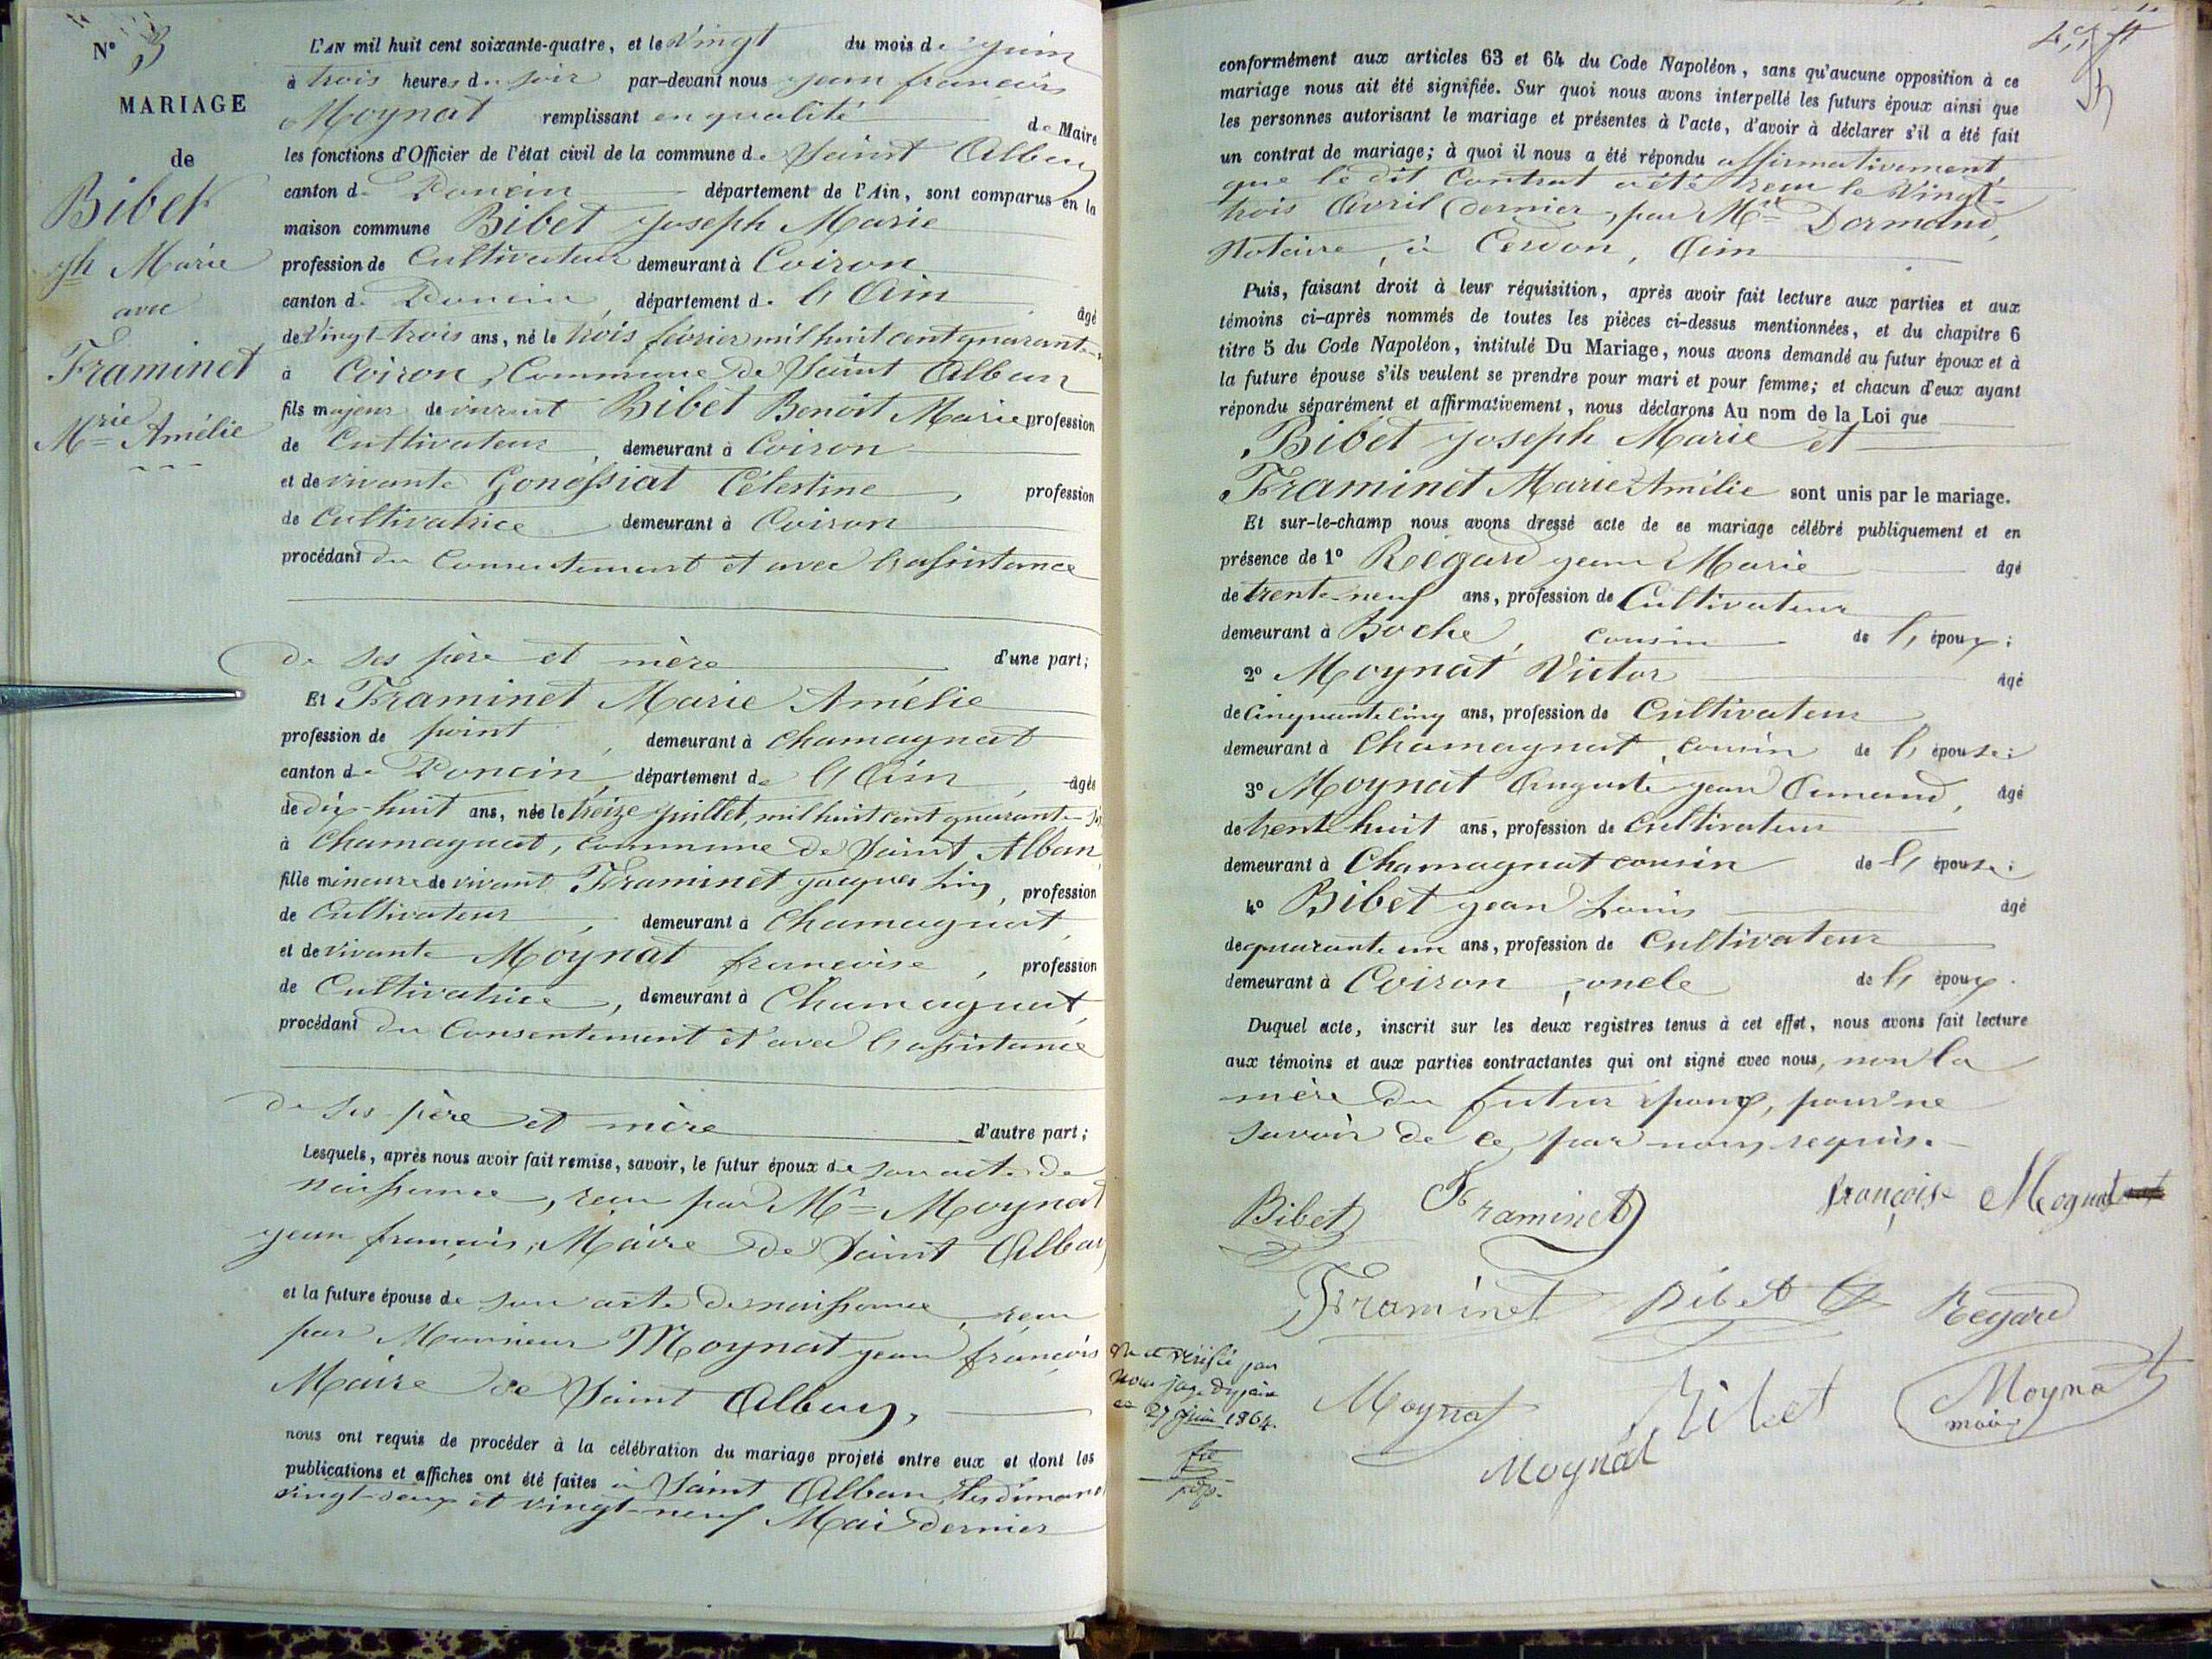 N° 3
MARIAGE
de
Bibet
Jph Marie
avec
Framinet
Mrie Amélie
L'AN mil huit cent soixante-quatre, et le Vingt du mois de juin
à trois heures du soir par-devant nous jean francois
Moynat remplissant en qualité de Maire
les fonctions d'Officier de l'état civil de la commune de Saint Alban
canton de Poncin département de l'Ain, sont comparus en la
maison commune Bibet Joseph Marie
profession de Cultivateur demeurant à Coiron
canton de Poncin, département de l'Ain âgé
de Vingt-trois ans, né le trois février mil huit cent quarante-
à Coiron, Commune de Saint Alban
fils majeur de vivant Bibet Benoît Marie profession
de Cultivateur, demeurant à Coiron
et de vivante Gonessiat Célestine, profession
de Cultivatrice demeurant à Coiron
procédant du Consentement et avec l'assistance
de ses père et mère d'une part;
Et Framinet Marie Amélie
profession de point, demeurant à Chamagnat
canton de Poncin, département de l'Ain, âgée
de dix-huit ans, née le treize juillet, mil huit cent quarante-
à Chamagnat, commune de Saint Alban
fille mineure de vivant Framinet jacques, profession
de Cultivateur, demeurant à Chamagnat,
et de vivante Moynat francoise, profession
de Cultivatrice, demeurant à Chamagnat,
procédant du Consentement et avec l'assistance
de ses père et mère d'autre part;
Lesquels, après nous avoir fait remise, savoir, le futur époux de son acte de
naissance, reçu par Mr Moynat
jean françois, Maire de Saint Alban
et la future épouse de son acte de naissance, reçu
par Monsieur Moynat jean françois
Maire de Saint Alban,
nous ont requis de procéder à la célébration du mariage projeté entre eux et dont les
publications et affiches ont été faites à Saint Alban, les dimanc
vingt-deux et vingt-neuf Mai dernier
conformément aux articles 63 et 64 du Code Napoléon, sans qu'aucune opposition à ce
mariage nous ait été signifiée. Sur quoi nous avons interpellé les futurs époux ainsi que
les personnes autorisant le mariage et présentes à l'acte, d'avoir à déclarer s'il a été fait
un contrat de mariage; à quoi il nous a été répondu affirmativement,
que le dit Contrat a été reçu le Vingt-
trois Avril dernier, par Me Dormand,
Notaire, à Cerdon, Ain
Puis, faisant droit à leur réquisition, après avoir fait lecture aux parties et aux
témoins ci-après nommés de toutes les pièces ci-dessus mentionnées, et du chapitre 6
titre 5 du Code Napoléon, intitulé Du Mariage, nous avons demandé au futur époux et à
la future épouse s'ils veulent se prendre pour mari et pour femme; et chacun d'eux ayant
répondu séparément et affirmativement, nous déclarons Au nom de la Loi que
Bibet Joseph Marie et
Framinet Marie Amélie sont unis par le mariage.
Et sur-le-champ nous avons dressé acte de ce mariage célébré publiquement et en
présence de 1° Régard jean Marie âgé
de trente-neuf ans, profession de Cultivateur
demeurant à Boche, cousin de l'époux;
2° Moynat Victor âgé
de Cinquante cinq ans, profession de Cultivateur
demeurant à Chamagnat, cousin de l'épouse;
3° Moynat Auguste jean Armand, âgé
de trente huit ans, profession de Cultivateur
demeurant à Chamagnat cousin de l'épouse;
4° Bibet jean Louis âgé
de quarante un ans, profession de Cultivateur
demeurant à Coiron, oncle de l'époux.
Duquel acte, inscrit sur les deux registres tenus à cet effet, nous avons fait lecture
aux témoins et aux parties contractantes qui ont signé avec nous, non la
mère du futur époux, pour ne
savoir de ce par nous requis.
Bibet Framinet françoise Moynat
Framinet Bibet Regard
Vu et vérifié par
nous juge de paix
ce 27 juin 1864.
Moynat Bibet Moynat
maire
Moynat